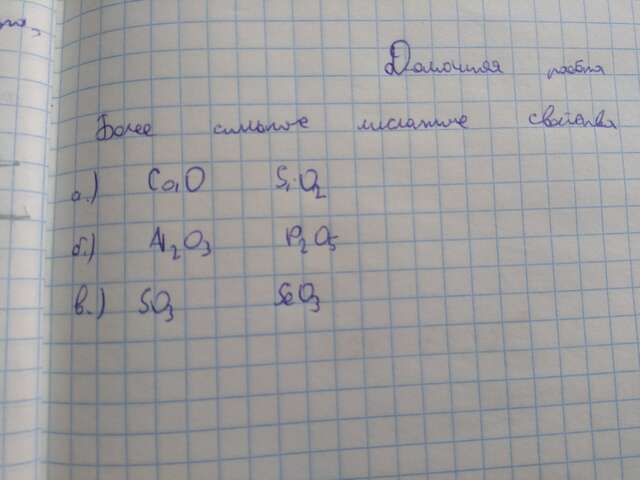 Домашняя работа
Более сильные кислотные свойства
а.) CaO SiO₂
б.) Al₂O₃ P₂O₅
в.) SO₃ SeO₃